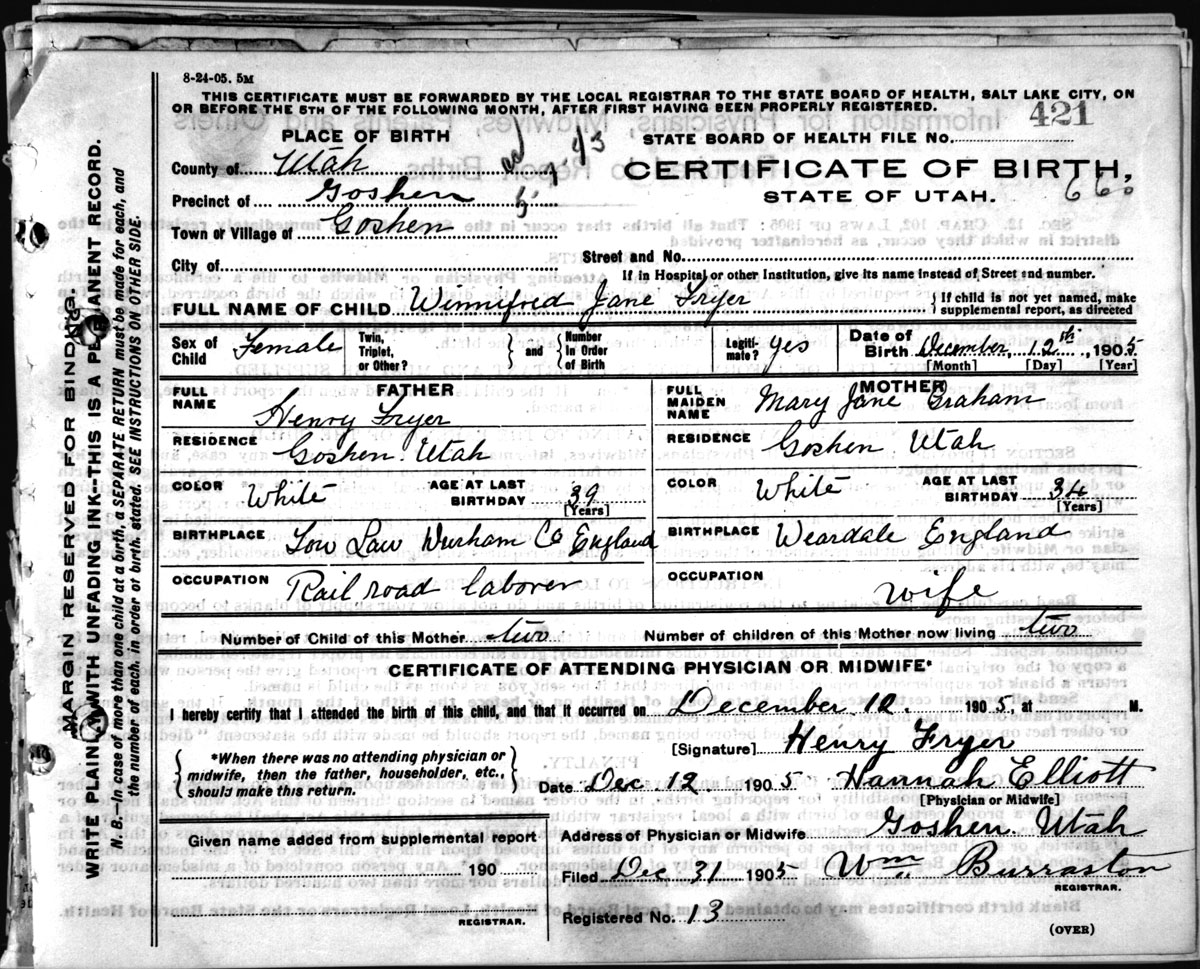 8-24-05. 5M
THIS CERTIFICATE MUST BE FORWARDED BY THE LOCAL REGISTRAR TO THE STATE BOARD OF HEALTH, SALT LAKE CITY, ON
OR BEFORE THE 5TH OF THE FOLLOWING MONTH, AFTER FIRST HAVING BEEN PROPERLY REGISTERED.
421
PLACE OF BIRTH
STATE BOARD OF HEALTH FILE NO.
County of Utah
CERTIFICATE OF BIRTH,
Precinct of Goshen
STATE OF UTAH.
Town or Village of Goshen
City of
Street and No.
If in Hospital or other Institution, give its name instead of Street and number.
FULL NAME OF CHILD Winnifred Jane Fryer
} If child is not yet named, make
supplemental report, as directed
Sex of Child Female
Twin, Triplet, or Other? } and { Number in Order of Birth
Legitimate? yes
Date of Birth December 12th, 1905
[Month] [Day] [Year]
FATHER
FULL NAME Henry Fryer
RESIDENCE Goshen. Utah
COLOR White AGE AT LAST BIRTHDAY 39
[Years]
BIRTHPLACE Tow Law Durham Co England
OCCUPATION Rail road laborer
MOTHER
FULL MAIDEN NAME Mary Jane Graham
RESIDENCE Goshen Utah
COLOR White AGE AT LAST BIRTHDAY 34
[Years]
BIRTHPLACE Weardale England
OCCUPATION wife
Number of Child of this Mother two Number of children of this Mother now living two
CERTIFICATE OF ATTENDING PHYSICIAN OR MIDWIFE*
I hereby certify that I attended the birth of this child, and that it occurred on December 12. 1905, at M.
{ *When there was no attending physician or
midwife, then the father, householder, etc.,
should make this return. }
[Signature] Henry Fryer
Date Dec 12 1905 Hannah Elliott
[Physician or Midwife]
Given name added from supplemental report
190
REGISTRAR.
Address of Physician or Midwife Goshen Utah
Filed Dec 31 1905 Wm. Burraston
REGISTRAR.
Registered No. 13
(OVER)
MARGIN RESERVED FOR BINDING.
WRITE PLAINLY WITH UNFADING INK--THIS IS A PERMANENT RECORD.
N. B.--In case of more than one child at a birth, a SEPARATE RETURN must be made for each, and
the number of each, in order of birth, stated. SEE INSTRUCTIONS ON OTHER SIDE.